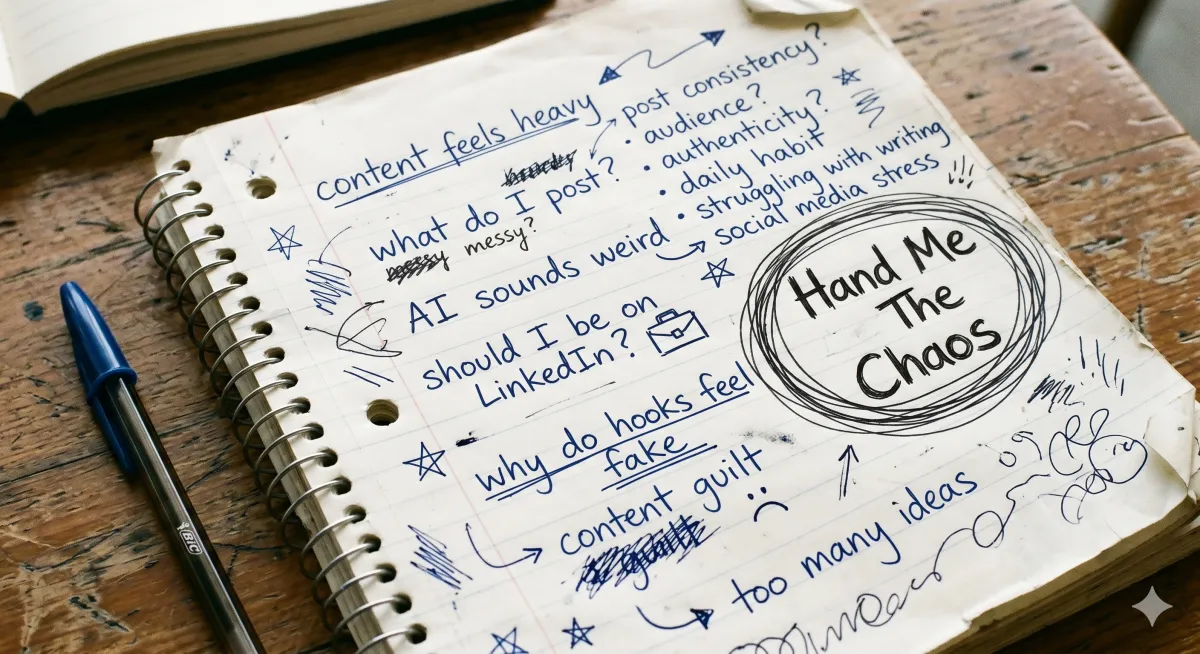 content feels heavy
what do I post?
messy?
AI sounds weird
should I be on
LinkedIn?
why do hooks feel
fake
content guilt
too many ideas
post consistency?
• audience?
• authenticity?
• daily habit
• struggling with writing
social media stress
Hand Me
The
Chaos
BIC